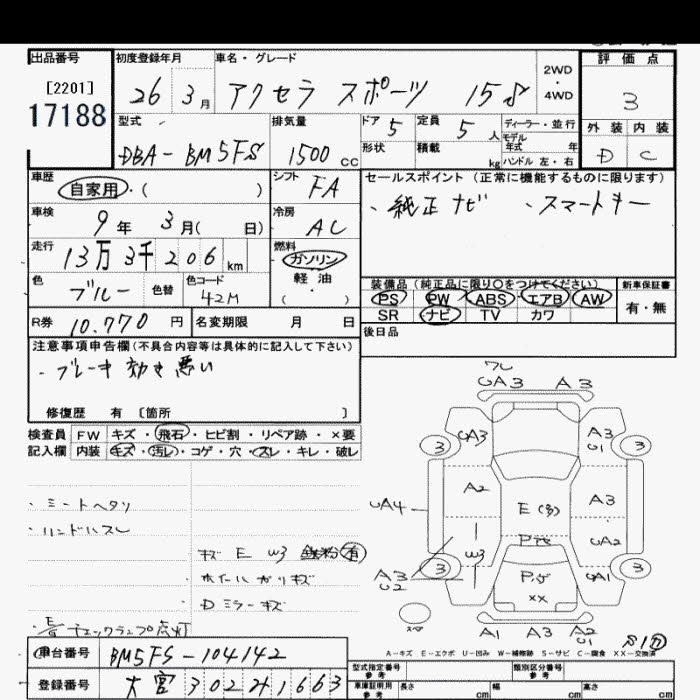 出品番号 初度登録年月 車名・グレード 評価点
[2201]
17188
26 3月 アクセラ スポーツ 15S 2WD・4WD 3
型式 排気量 ドア 5 定員 5人 ディーラー・並行 外装 内装
DBA-BM5FS 1500cc 形状 積載 kg モデル年式 年 ハンドル 左・右 D C
車歴 自家用・( ) シフト FA セールスポイント (正常に機能するものに限ります)
・純正ナビ ・スマートキー
車検 9年 3月( 日) 冷房 AC
走行 13万3千206km 燃料 ガソリン
軽油
( )
色 ブルー 色替 色コード 42M
装備品 (純正品に限り○をつけてください) 新車保証書
PS PW ABS エアB AW 有・無
SR ナビ TV カワ
R券 10.770円 名変期限 月 日 後日品
注意事項申告欄 (不具合内容等は具体的に記入して下さい)
・ブレーキ効き悪い
修復歴 有 〔箇所 〕
検査員 FW キズ・飛石・ヒビ割・リペア跡・×要
記入欄 内装 キズ・汚レ・コゲ・穴・スレ・キレ・破レ
UA3 A3
3 UA3 A3 U1 3
A2 E(多) A3
UA4
UA2
W3
3 A3 U2 UA1 3
××
A1 A3 A2 U1
・シートヘタリ
・ハンドルスレ
キズ E W3 鉄粉有
・ホイールガリキズ
・Dミラーキズ
チェックランプ点灯
A-キズ E-エクボ U-凹み W-補修跡 S-サビ C-腐食 XX-交換済
車台番号 BM5FS-104142
登録番号 大宮302
型式指定番号 類別区分番号
参考 参考
車庫証明用 参考 長さ cm 幅 cm 高さ cm